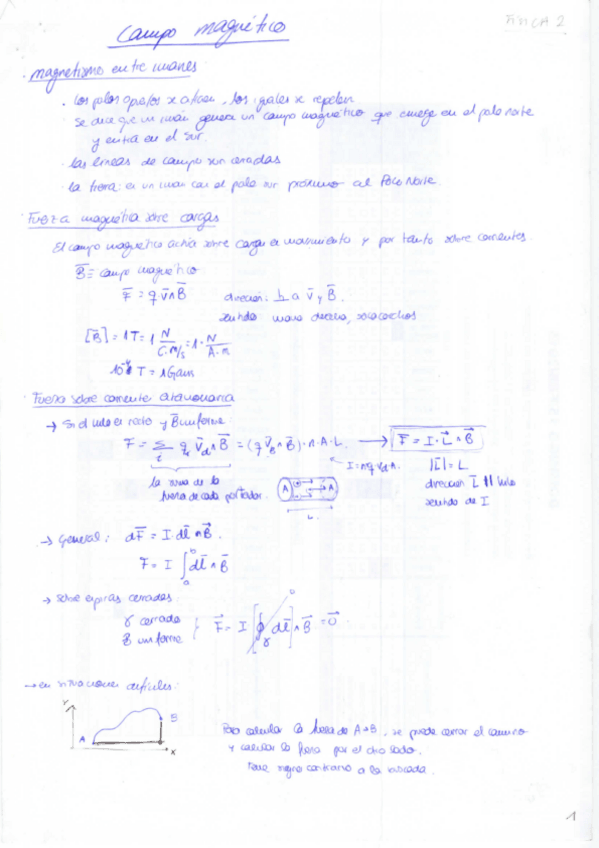 FÍSICA 2
Campo magnético
· magnetismo entre imanes
· Los polos opuestos se atraen, los iguales se repelen
· Se dice que un iman genera un campo magnético que emerge en el polo norte
y entra en el sur.
· Las lineas de campo son cerradas
· la tierra: es un iman con el polo sur próximo al Polo Norte.
· Fuerza magnética sobre cargas
El campo magnético actúa sobre cargas en movimiento y por tanto sobre corrientes.
B̄ ≡ campo magnético
F̄ = q v̄ ∧ B̄ dirección: ⊥ a v̄ y B̄.
sentido mano derecha, sacacorchos
[B̄] = 1T = 1 N/(C·m/s) = 1 · N/(A·m)
10⁻⁴ T = 1 Gauss
· Fuerza sobre corriente estacionaria
→ Si el hilo es recto y B̄ uniforme:
F̄ = Σᵢ qᵢ v̄d ∧ B̄ = (q v̄d ∧ B̄) · n · A · L. → F̄ = I · L̄ ∧ B̄
la suma de la
fuerza de cada portador.
I = nq vd A.
|L̄| = L
dirección L̄ || hilo
sentido de I
A A
L
→ General: dF̄ = I · dl̄ ∧ B̄.
F̄ = I ∫ dl̄ ∧ B̄
→ Sobre espiras cerradas:
γ cerrado
B̄ uniforme
F̄ = I [∮γ dl̄] ∧ B̄ = 0̄
0
→ en situaciones difíciles:
Y
A
B
X
Para calcular la fuerza de A→B, se puede cerrar el camino
y calcular la fuerza por el otro lado.
Tiene signo contrario a la buscada.
1